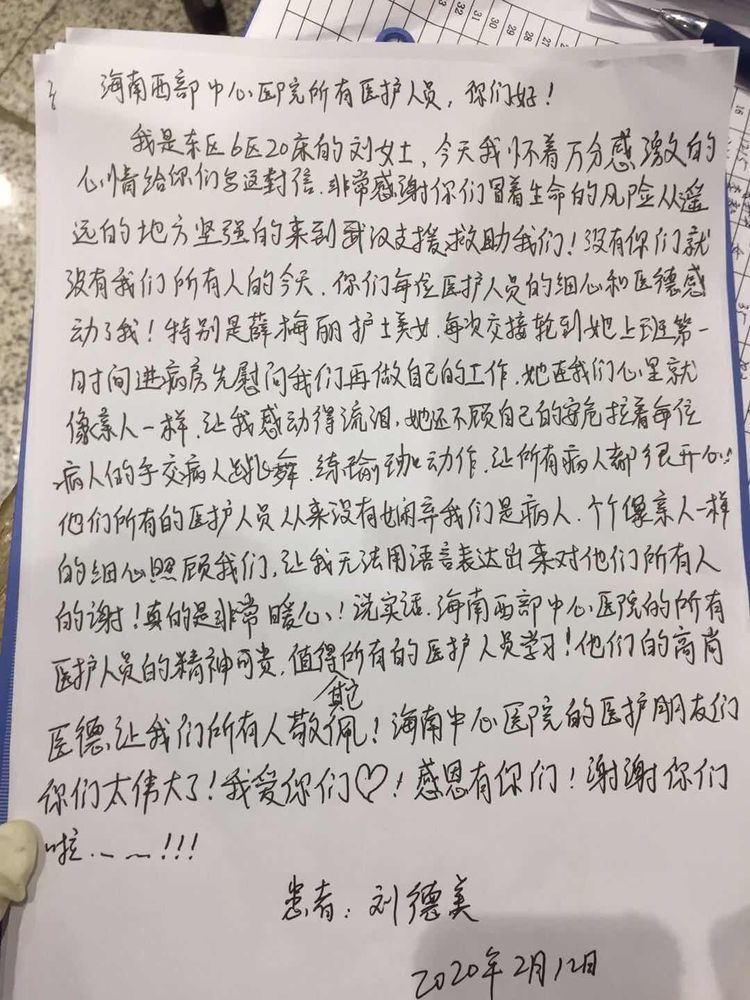 海南西部中心医院所有医护人员，你们好！
我是东区6区20床的刘女士，今天我怀着万分感激的
心情给你们写这封信．非常感谢你们冒着生命的风险从遥
远的地方坚强的来到武汉支援救助我们！没有你们就
没有我们所有人的今天．你们每位医护人员的细心和医德感
动了我！特别是薛梅丽护士美女．每次交接轮到她上班第一
时间进病房先慰问我们再做自己的工作．她在我们心里就
像亲人一样．让我感动得流泪．她还不顾自己的安危拉着每位
病人的手交病人跳舞．练瑜珈动作．让所有病人都很开心！
他们所有的医护人员从来没有嫌弃我们是病人．个个像亲人一样
的细心照顾我们，让我无法用语言表达出来对他们所有人
的谢！真的是非常暖心！说实话．海南西部中心医院的所有
医护人员的精神可贵．值得所有的医护人员学习！他们的高尚
其它
医德让我们所有人敬佩！海南中心医院的医护朋友们
你们太伟大了！我爱你们♡！感恩有你们！谢谢你们
啦……！！！
患者：刘德美
2020年2月12日
31
30
29
28
27